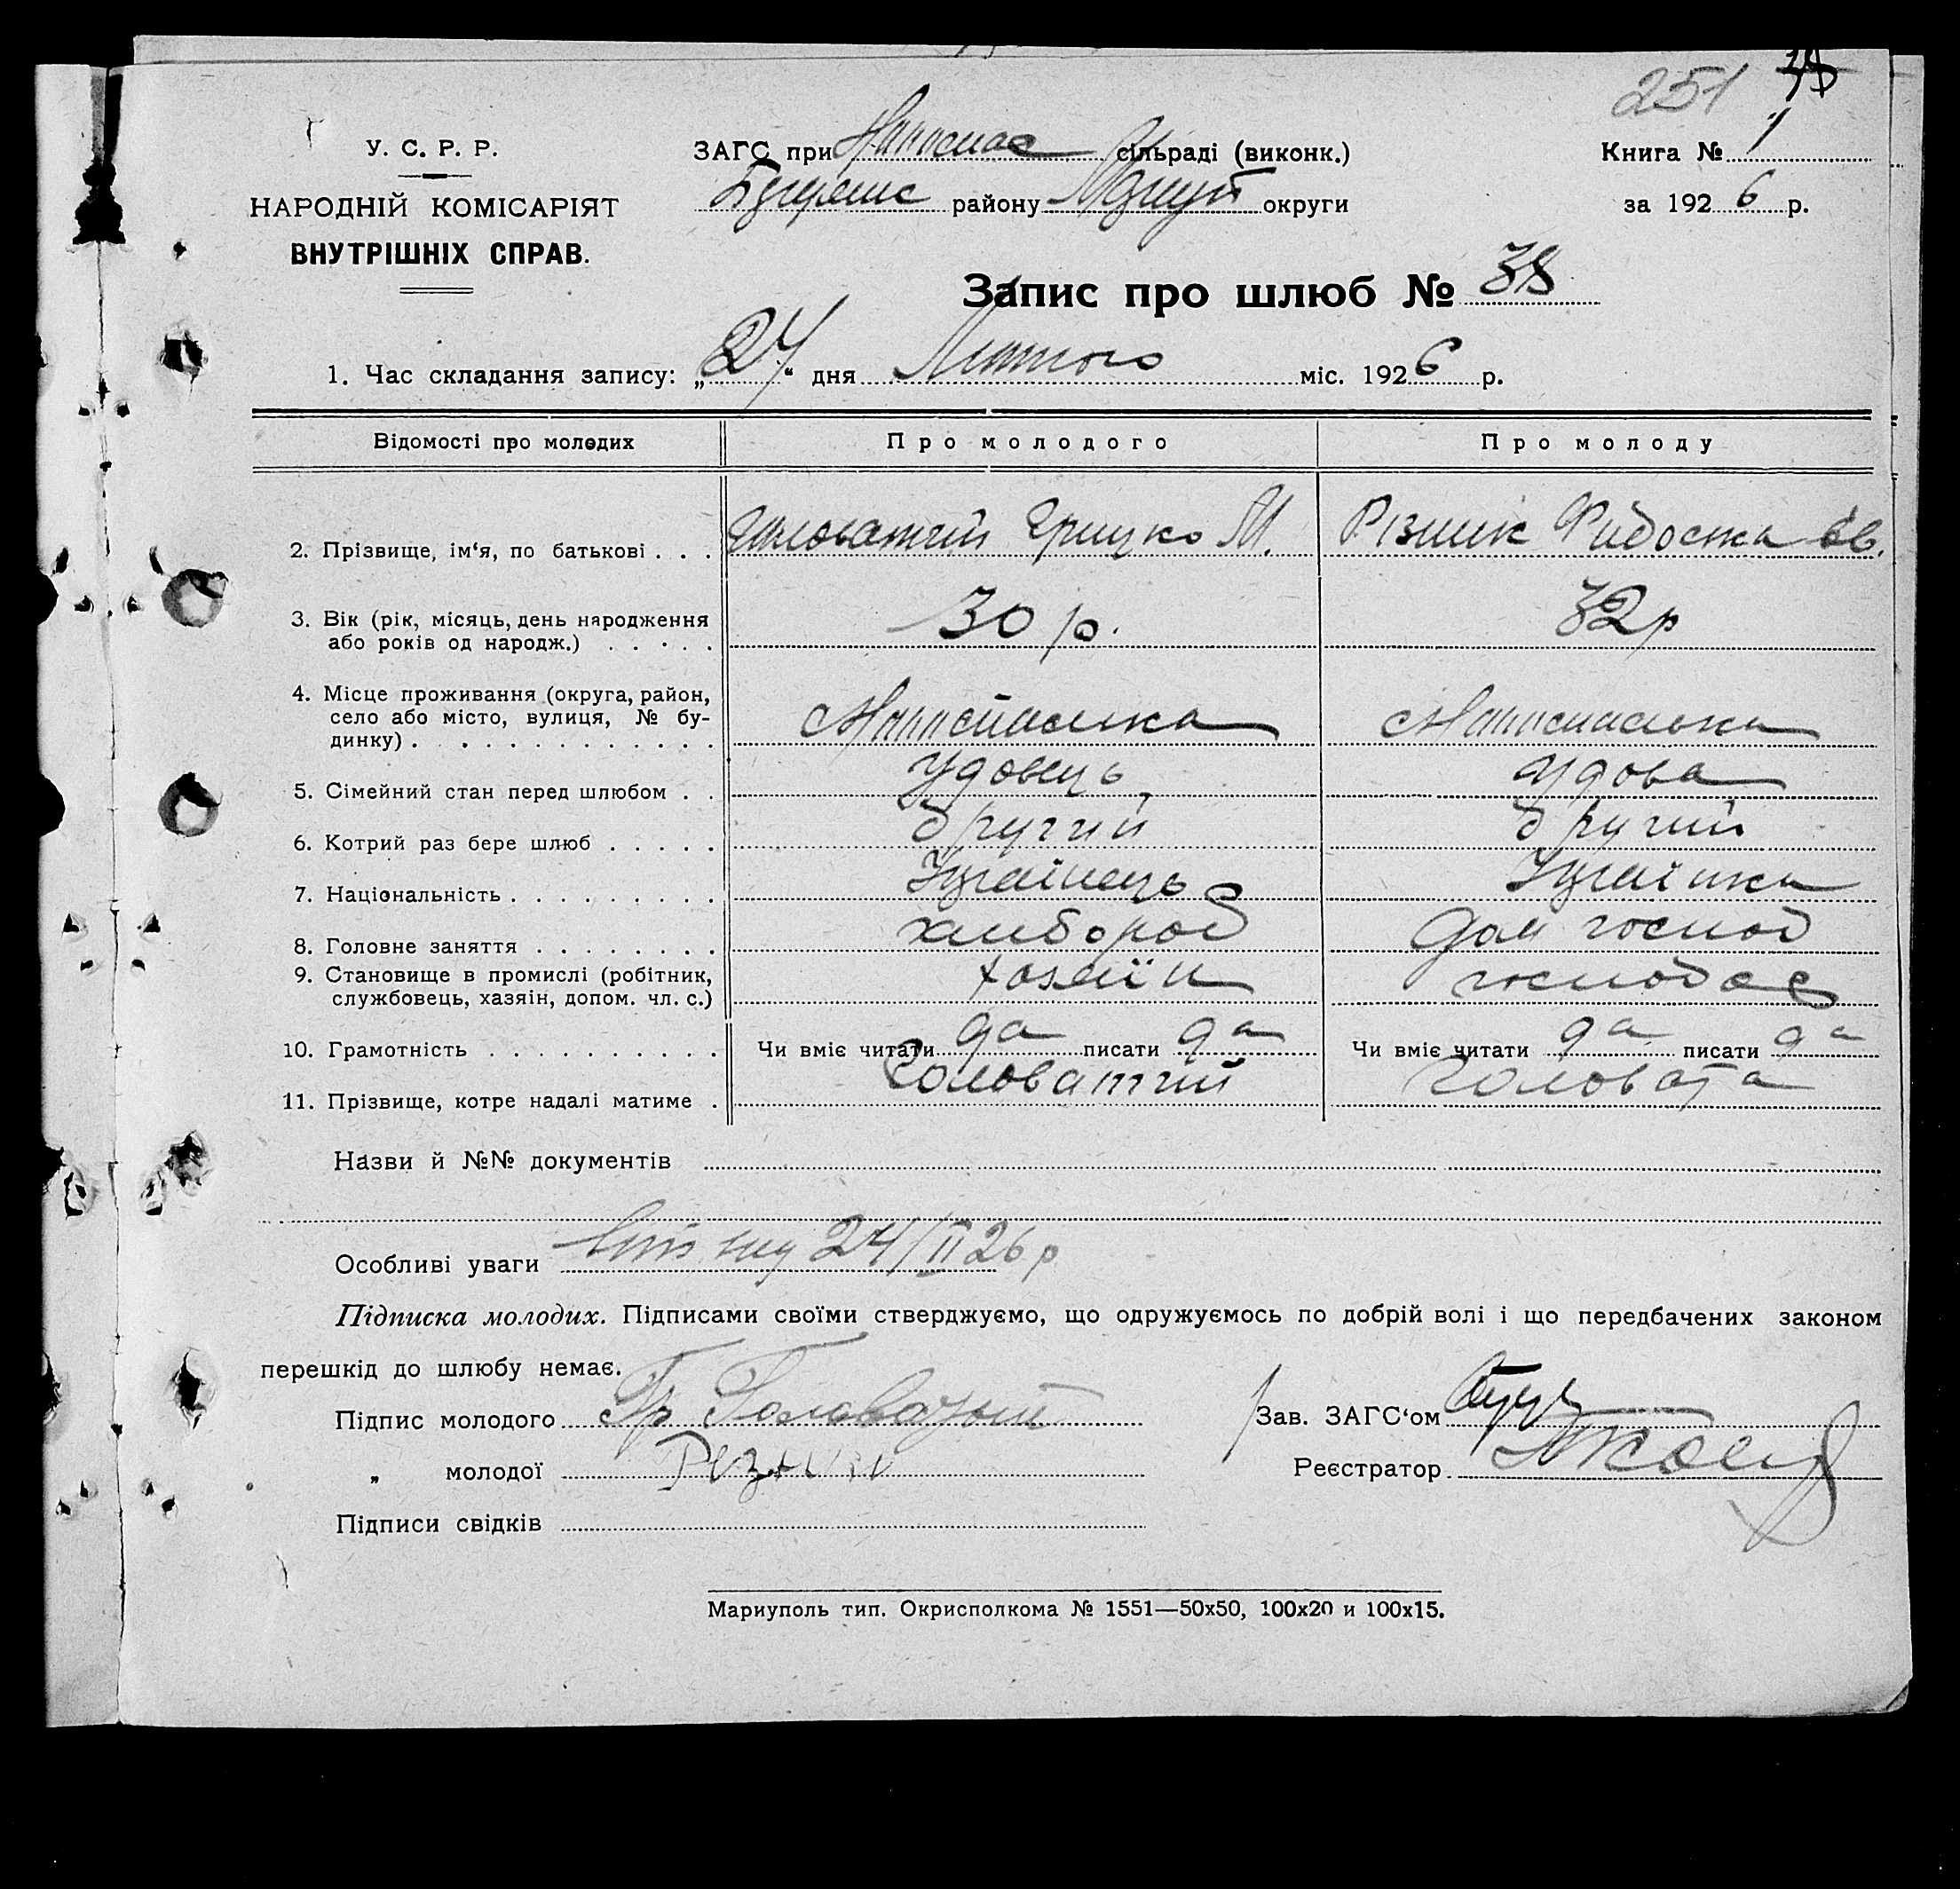 251 38
У. С. Р. Р.
НАРОДНІЙ КОМІСАРІЯТ
ВНУТРІШНІХ СПРАВ.
ЗАГС при сільраді (виконк.)
району округи
Книга № 1
за 1926 р.
Запис про шлюб № 38
1. Час складання запису: „24“ дня Лютого міс. 1926 р.
Відомості про молодих Про молодого Про молоду
2. Прізвище, ім‘я, по батькові . . . Головатий Грицко М. Різник Фидоска Ів.
3. Вік (рік, місяць, день народження
або років од народж.) . . . . . 30 р. 32 р
4. Місце проживання (округа, район,
село або місто, вулиця, № бу-
динку) . . . . . . . . . . . .
5. Сімейний стан перед шлюбом . . Удовець Удова
6. Котрий раз бере шлюб . . . . . другий другий
7. Національність . . . . . . . . . Українець Українка
8. Головне заняття . . . . . . . . хлибороб дом господ
9. Становище в промислі (робітник,
службовець, хазяїн, допом. чл. с.) хозяїн господар
10. Грамотність . . . . . . . . . . Чи вміє читати да писати да Чи вміє читати да писати да
11. Прізвище, котре надалі матиме . Головатий Головата
Назви й №№ документів
Особливі уваги 24/II 26 р
Підписка молодих. Підписами своїми стверджуємо, що одружуємось по добрій волі і що передбачених законом
перешкід до шлюбу немає.
Підпис молодого Гр Головатый
„ молодої Резник
Зав. ЗАГС‘ом
Реєстратор
Підписи свідків
Мариуполь тип. Окрисполкома № 1551—50х50, 100х20 и 100х15.